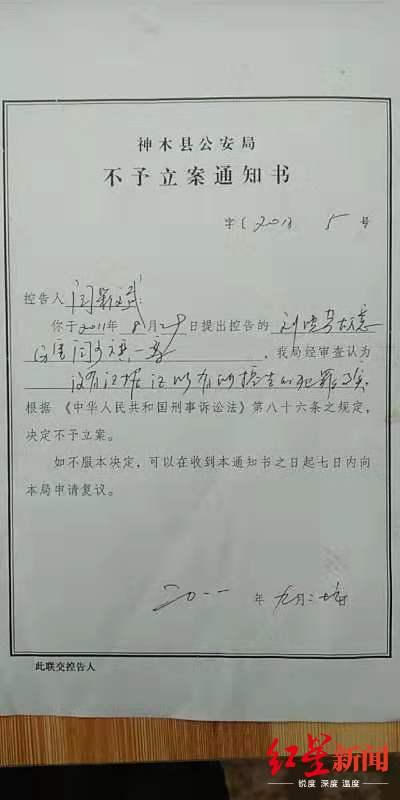 神木县公安局
不予立案通知书
字〔2011 5 号
控告人 闫
你于2011年8月29日提出控告的 刘 故意
一案，我局经审查认为
没有证据证 犯罪事实
根据《中华人民共和国刑事诉讼法》第八十六条之规定，
决定不予立案。
如不服本决定，可以在收到本通知书之日起七日内向
本局申请复议。
二〇一一 年 九月二
此联交控告人
红星新闻
锐度 深度 温度